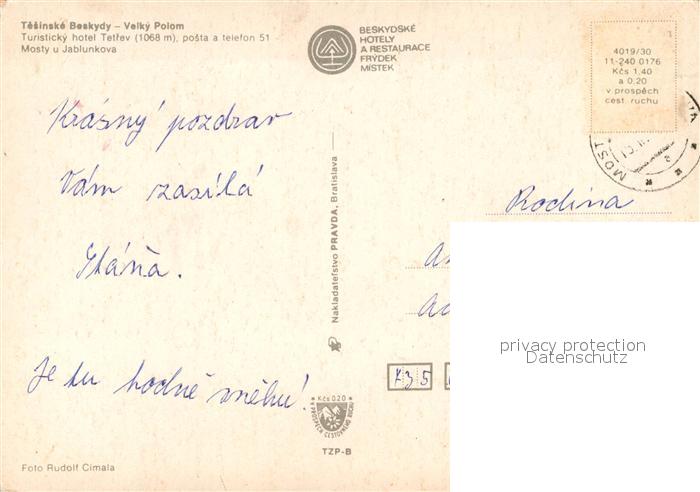 Těšinské Beskydy – Velký Polom
Turistický hotel Tetřev (1068 m), pošta a telefon 51
Mosty u Jablunkova
BESKYDSKÉ
HOTELY
A RESTAURACE
FRÝDEK
MÍSTEK
4019/30
11-240 0176
Kčs 1,40
a 0,20
v prospěch
cest. ruchu
MOST
Krásný pozdrav
Vám zasílá
Stáňa.
Je tu hodně sněhu!
Nakladateľstvo PRAVDA, Bratislava
Rodina
735
privacy protection
Datenschutz
Kčs 0.20
V PROSPĚCH CESTOVNÍHO RUCHU
TZP-B
Foto Rudolf Cimala